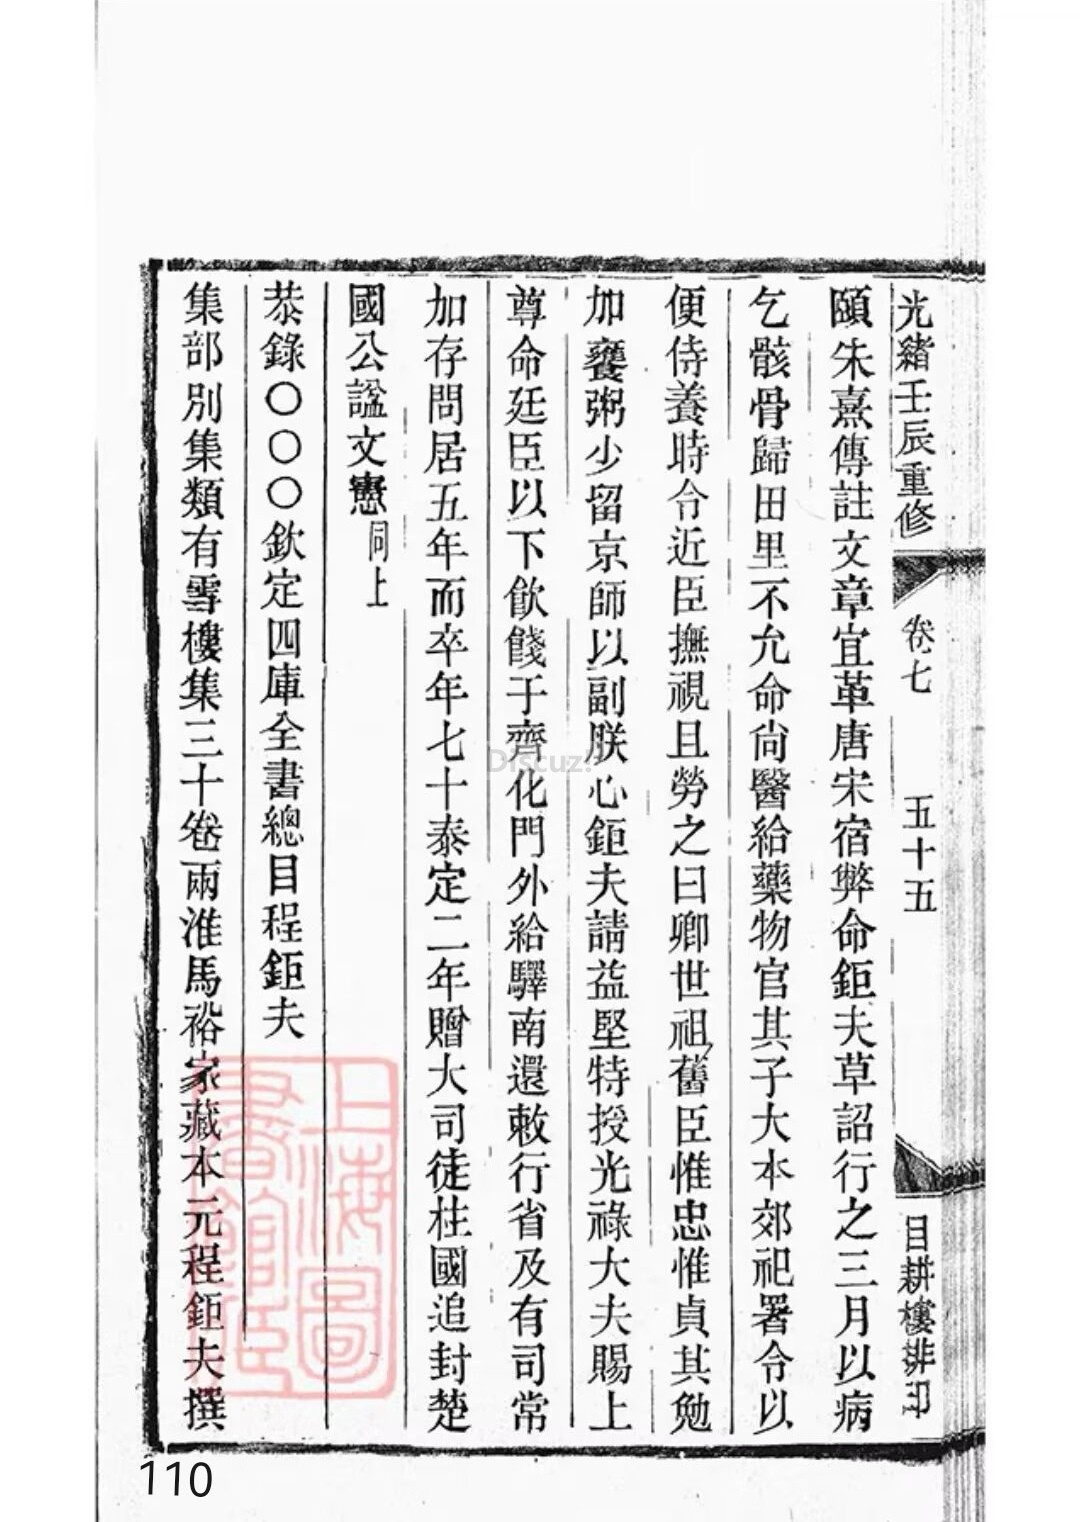 光緒壬辰重修
卷七
五十五
目耕樓排印
頤朱熹傳註文章宜革唐宋宿弊命鉅夫草詔行之三月以病
乞骸骨歸田里不允命尙醫給藥物官其子大本郊祀署令以
便侍養時令近臣撫視且勞之曰卿世祖舊臣惟忠惟貞其勉
加餐粥少留京師以副朕心鉅夫請益堅特授光祿大夫賜上
尊命廷臣以下飲餞于齊化門外給驛南還敕行省及有司常
加存問居五年而卒年七十泰定二年贈大司徒柱國追封楚
國公諡文憲同上
恭錄〇〇〇欽定四庫全書總目程鉅夫
集部別集類有雪樓集三十卷兩淮馬裕家藏本元程鉅夫撰
上海圖書館藏
Discuz!
110